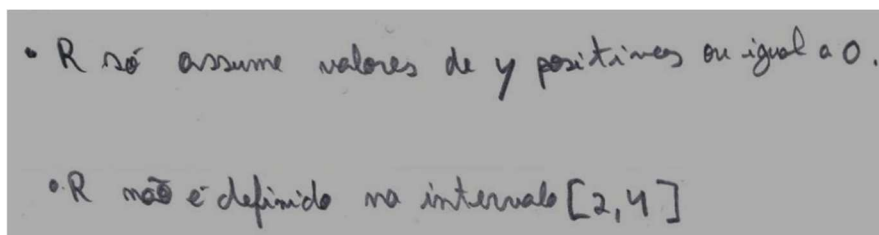 • R só assume valores de y positivos ou igual a 0.
• R não é definido no intervalo [2,4]